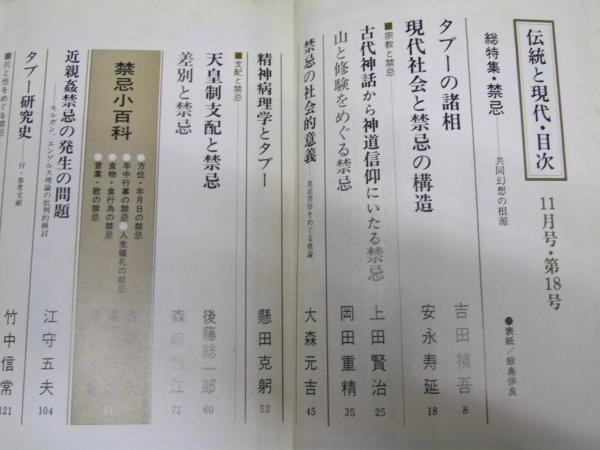 伝統と現代・目次
11月号・第18号
●表紙／飯島保良
総特集・禁忌――共同幻想の根源
タブーの諸相
吉田禎吾 8
現代社会と禁忌の構造
安永寿延 18
■宗教と禁忌
古代神話から神道信仰にいたる禁忌
上田賢治 25
山と修験をめぐる禁忌
岡田重精 35
禁忌の社会的意義
大森元吉 45
精神病理学とタブー
懸田克躬 52
■支配と禁忌
天皇制支配と禁忌
後藤総一郎 60
差別と禁忌
森崎和江 71
禁忌小百科
●方位・年月日の禁忌
●年中行事の禁忌●人生儀礼の禁忌
●食物・食行為の禁忌
●言葉・歌の禁忌
81
近親姦禁忌の発生の問題
モルガン、エンゲルス理論の批判的検討
江守五夫 104
■死と性をめぐる禁忌
タブー研究史
付・参考文献
竹中信常 121